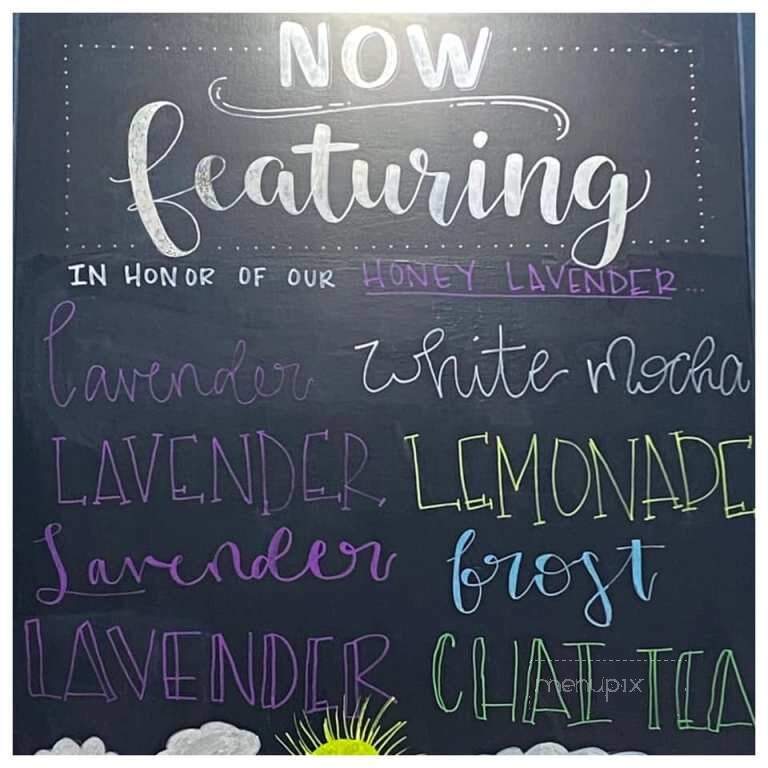 NOW
featuring
IN HONOR OF OUR HONEY LAVENDER...
lavender white mocha
LAVENDER LEMONADE
Lavender frost
LAVENDER CHAI TEA
menupix